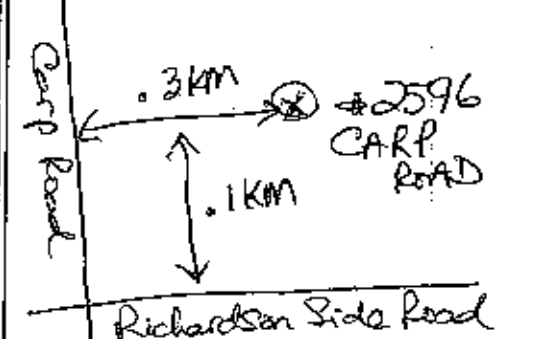 Carp Road
.3KM
#2596
CARP
ROAD
.1KM
Richardson Side Road